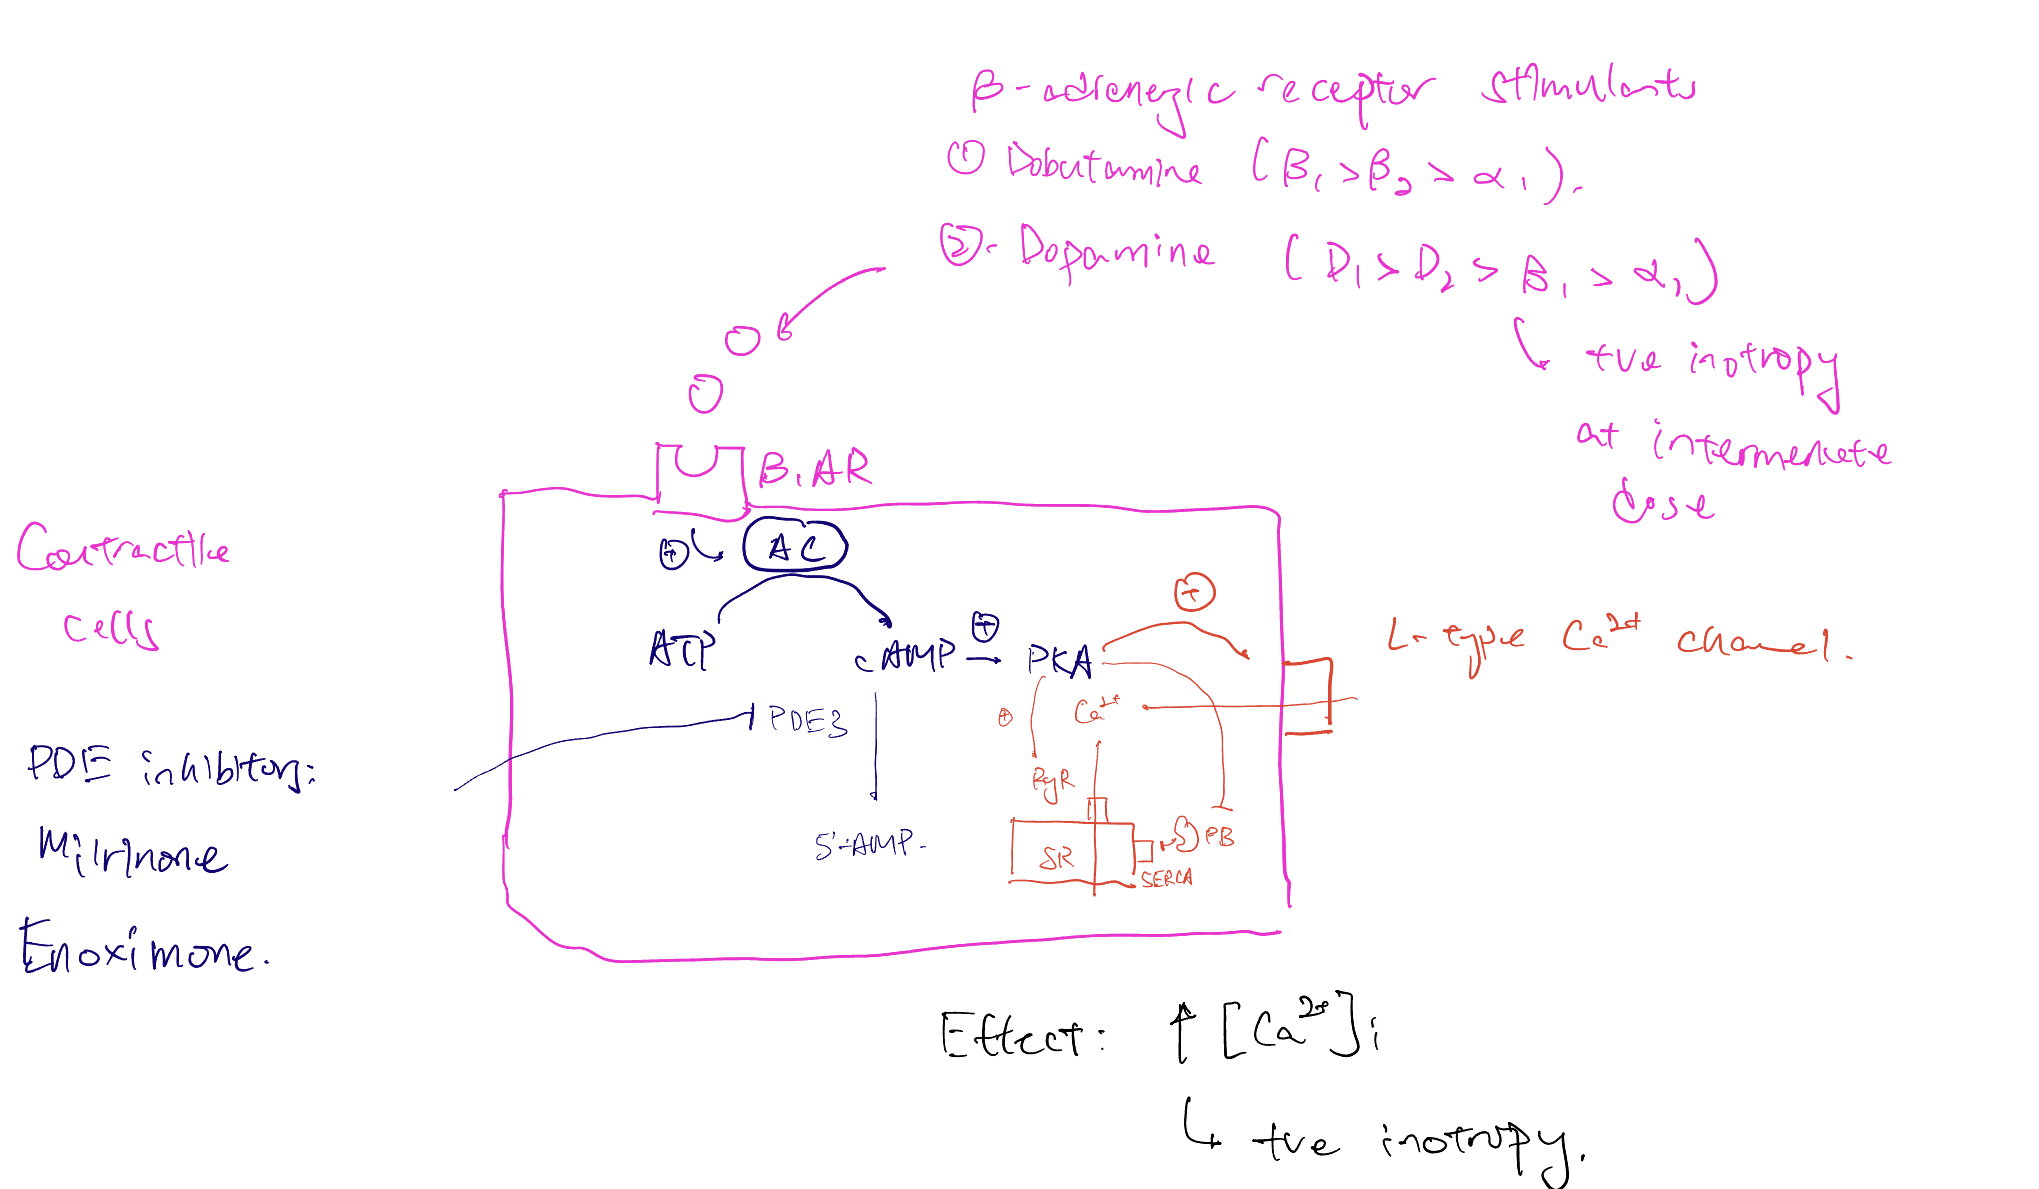 β-adrenergic receptor stimulants
① Dobutamine (β₁>β₂>α₁).
②. Dopamine (D₁>D₂>β₁>α₁)
+ve inotropy
at intermediate
dose
β₁AR
Contractile
cells
⊕ AC
⊕
ATP cAMP ⊕ PKA
L-type Ca²⁺ channel.
PDE3
⊕ Ca²⁺
PDE inhibitors:
RyR
Milrinone
5'-AMP.
SR
PB
SERCA
Enoximone.
Effect: ↑ [Ca²⁺]i
↳ +ve inotropy.